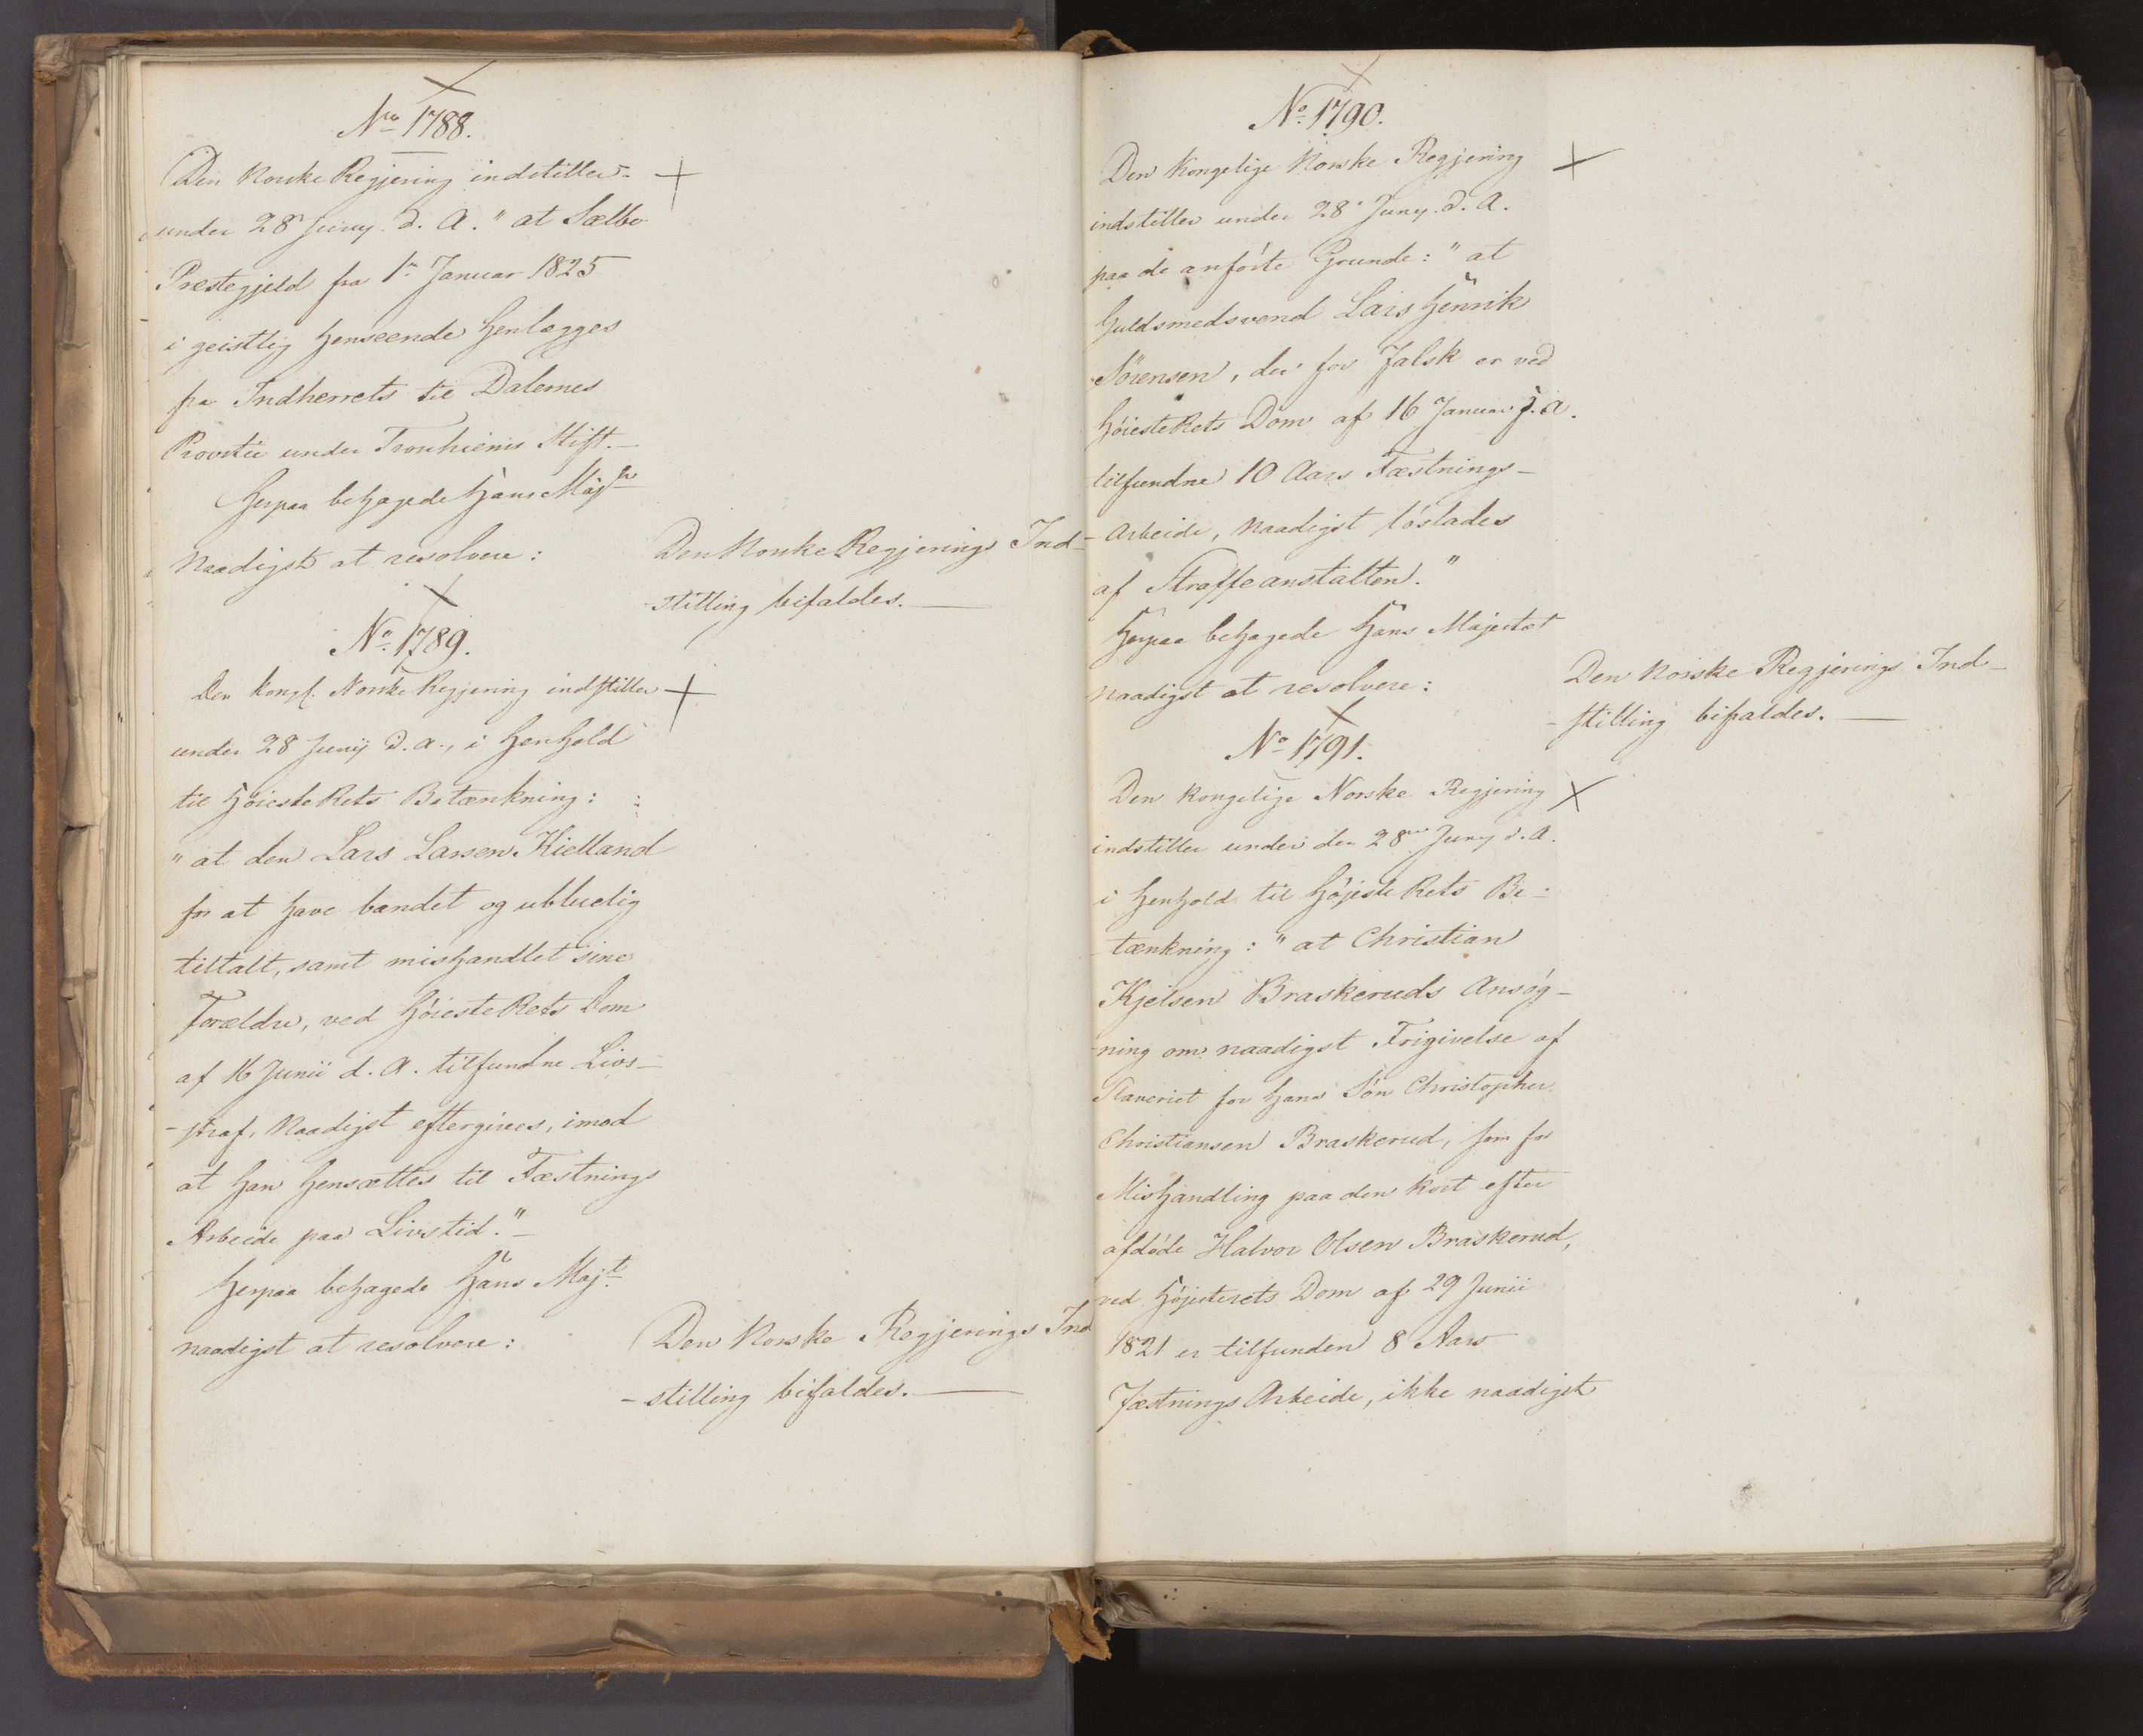 No 1788.
Den Norske Regjering indstiller
under 28 Juny d. A. "at Sælbo
Præstegjeld fra 1ste Januar 1825
i geistlig Henseende henlægges
fra Indherrets til Dalernes
Provstie under Tronhiems Stift.—
Herpaa behagede Hans Majts
Naadigst at resolvere:
Den Norske Regjerings Ind-
-stilling bifaldes.—
No 1789.
Den kongl. Norske Regjering indstiller
under 28 Junij d. a., i Henhold
til HöiesteRets Betænkning:
"at den Lars Larsen Kielland
for at have bandet og ubluelig
tiltalt, samt mishandlet sine
Forældre, ved HöiesteRets Dom
af 16 Junii d. A. tilfundne Livs-
-straf, Naadigst eftergives, imod
at han hensættes til Fæstnings
Arbeide paa Livstid."—
Herpaa behagede Hans Majt
naadigst at resolvere:
Den Norske Regjerings Ind
-stilling bifaldes.—
No 1790.
Den Kongelige Norske Regjering
indstiller under 28 Juny d. A.
paa de anförte Grunde: "at
Guldsmedsvend Lars Henrik
Sörensen, der for Falsk er ved
HöiesteRets Dom af 16 Januar f. a.
tilfundne 10 Aars Fæstnings-
-Arbeide, Naadigst löslades
af Straffeanstalten."
Herpaa behagede Hans Majestæt
Naadigst at resolvere:
Den Norske Regjerings Ind-
-stilling bifaldes.—
No 1791.
Den Kongelige Norske Regjering
indstiller under den 28de Juny d. A.
i Henhold til HöjesteRets Be-
tænkning: "at Christian
Kjelsen Braskeruds Ansög-
-ning om naadigst Frigivelse af
Slaveriet for hans Sön Christopher
Christiansen Braskerud, som for
Mishandling paa den kort efter
afdöde Halvor Olsen Braskerud,
ved Höjesterets Dom af 29 Junii
1821 er tilfunden 8 Aars
Fæstnings Arbeide, ikke naadigst